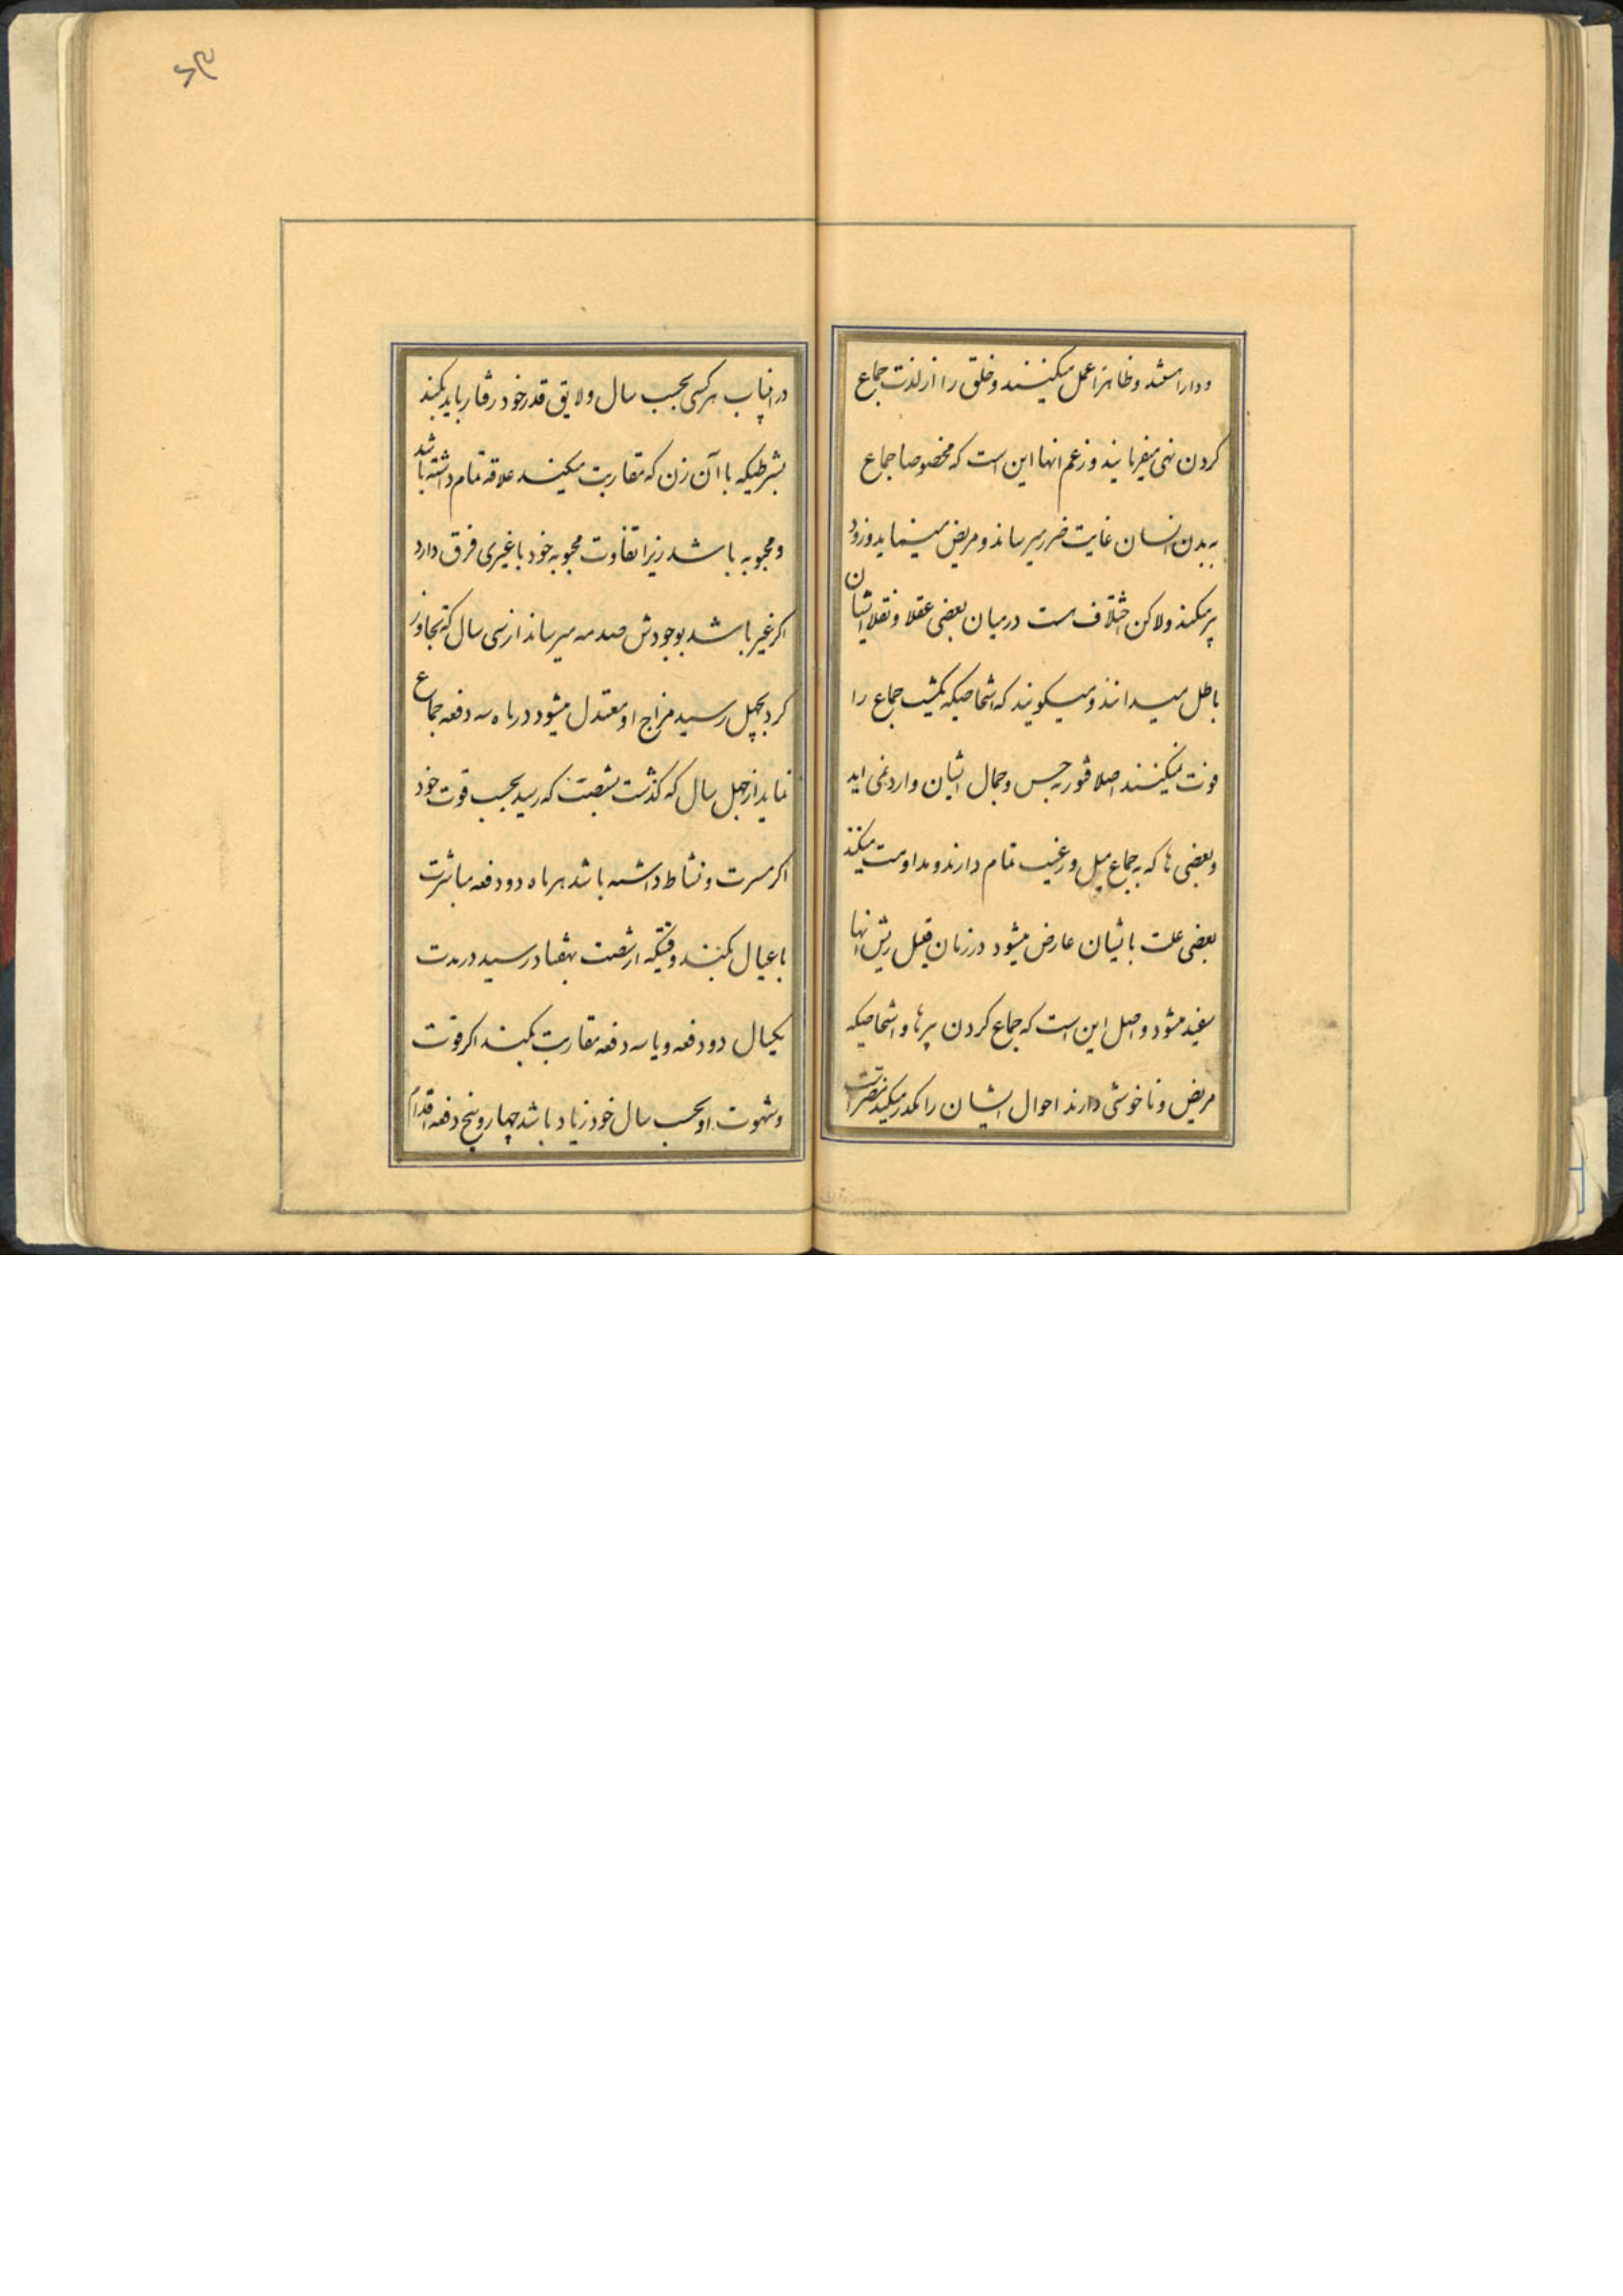 ودارا هستند وظاهرا عمل میکنند وخلق را از لذت جماع
کردن نهی میفرمایند وزعم انها این است که مخصوصا جماع
به بدن انسان غایت ضرر میرساند ومریض مینماید وزود
پر میکند ولاکن اختلاف هست درمیان بعضی عقلا ونقلا ایشان
باطل میدانند ومیکویند که اشخاصیکه یکشب جماع را
فوت نمیکنند اصلا قصور به حس وجمال ایشان وارد نمی اید
وبعضی ها که به جماع میل ورغبت تمام دارند ومداومت میکنند
بعضی علت بایشان عارض میشود در زمان قلیل ریش انها
سفید میشود واصل این است که جماع کردن پیرها واشخاصیکه
مریض وناخوشی دارند احوال ایشان را مکدر میکند
دراینباب هرکسی بحسب سال ولایق قدر خود رفتار باید بکند
بشرطیکه با آن زن که مقاربت میکنند علاقه تمام داشته باشد
ومحبوبه باشد زیرا تفاوت محبوبه خود با غیری فرق دارد
اکر غیر باشد بوجودش صدمه میرساند از سی سال که تجاوز
کرد بچهل رسید مزاج او معتدل میشود در ماه سه دفعه جماع
نماید از چهل سال که کذشت بشصت که رسید بحسب قوت خود
اکر مسرت ونشاط داشته باشد هر ماه دو دفعه مباشرت
باعیال بکنند وقتیکه از شصت بهفتاد رسید در مدت
یکسال دو دفعه ویا سه دفعه مقاربت بکنند اکر قوت
وشهوت او بحسب سال خود زیاد باشد چهار وپنج دفعه اقدام